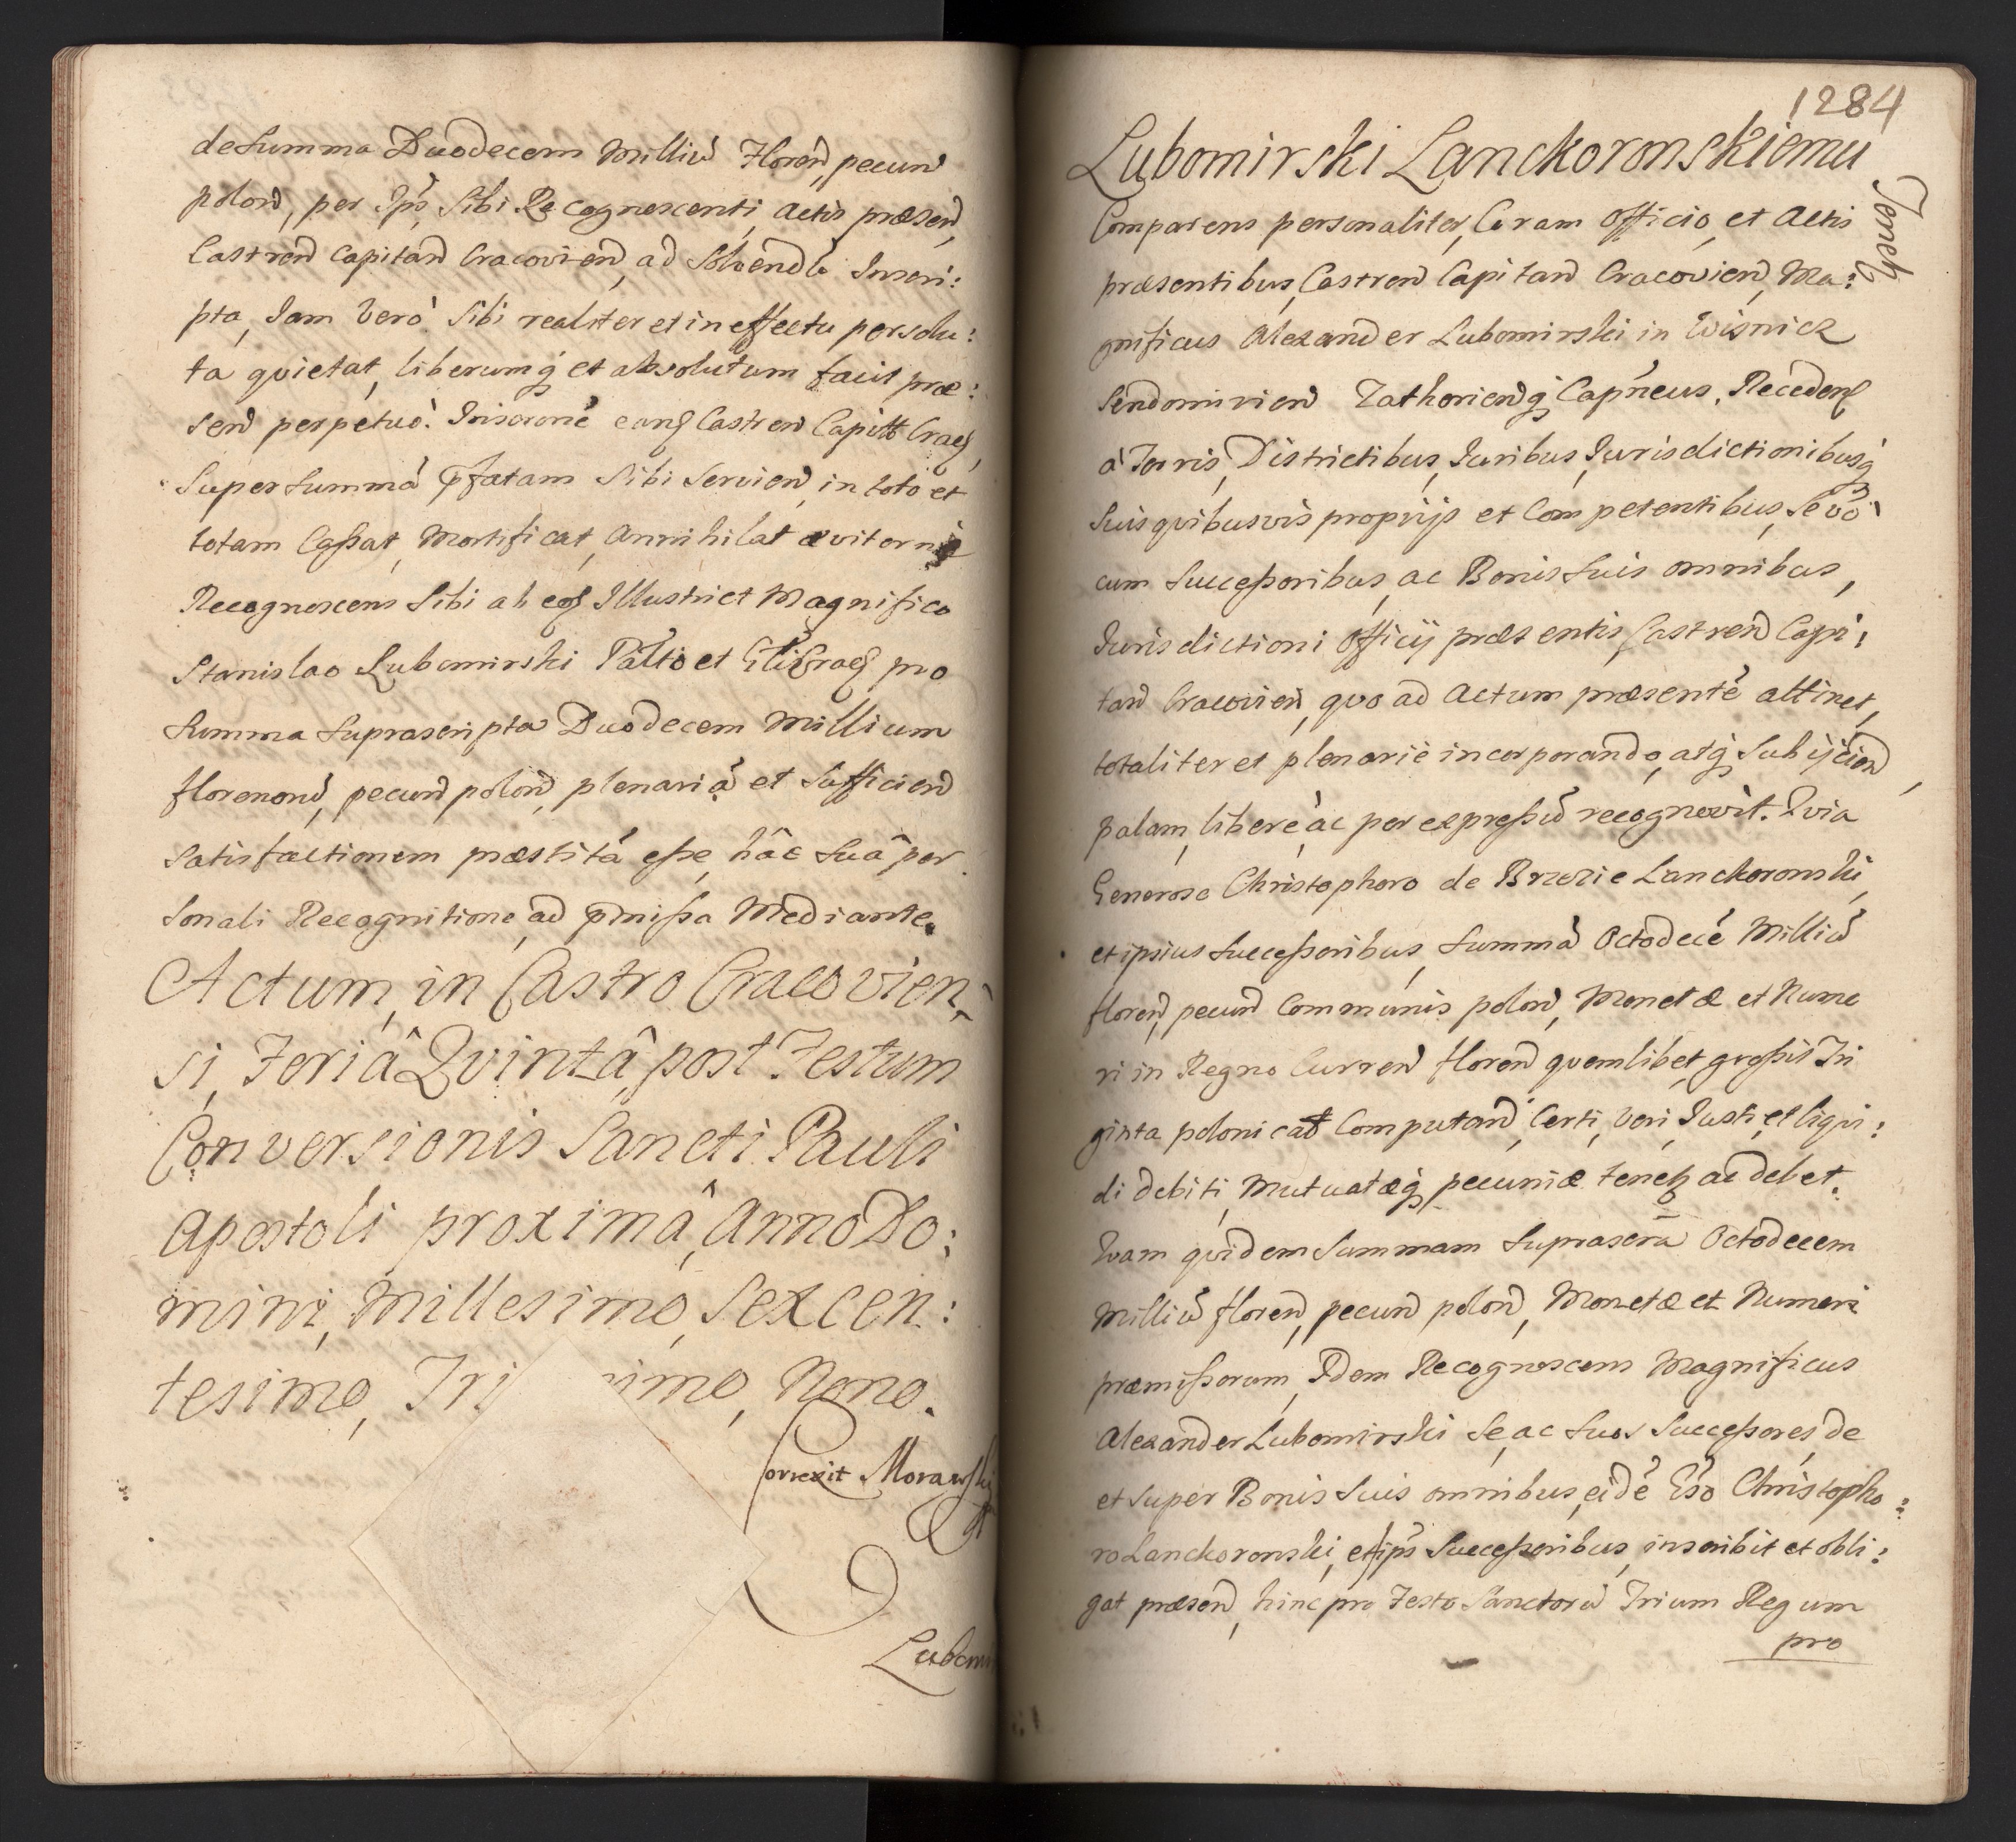 de Summa Duodecem Milliū Floren, pecun
polon, per Ips̃ Sibi Recognoscenti, Actis præsen,
Castren Capitan Cracovien, ad Solvendū Inscri:
pta, Jam Verò Sibi realiter et in effectu persolu:
ta qvietat, liberumq et absolutum facit præ:
sen perpetuò. Inscronē Castren Capitt Crac,
Super Summā p̃fatam Sibi Servien in toto et
totam Caßat, Mortificat, Annihilat
Recognoscens Sibi ab eod Illustri et Magnifico
Stanislao Lubomirski Paltō et Crac pro
Summa Suprascripta Duodecem Millium
florenorū, pecun polon, plenariā et Sufficien
Satisfactionem præstitā eße, hâc Suâ per
sonali Recognitione ad p̃mißa Mediante.
Actum, in Castro Cracovien,
si, Feriâ Qvintâ, post Festum
Conversionis Sancti Pauli
Apostoli proximâ, Anno Do:
mini, Millesimo, Sexcen:
tesimo, Tri imo, Nono.
Correxit Morawski
Lubomi
1284
Lubomirski Lanckoronskiemu
Tenetz
Comparens personaliter, Coram Officio, et Actis
præsentibus, Castren Capitan Cracovien, Ma:
gnificus Alexander Lubomirski in Wisnicz
Sendomirien Zathorienq Capneus, Receden
à Terris, Districtibus, Juribus, Jurisdictionibusq
Suis qvibusvis proprijs et Competentibus, Se vō
cum Succeßoribus, ac Bonis Suis omnibus,
Jurisdictioni Officij præsentis, Castren Capi:
tan Cracovien, quo ad Actum præsentē attinet,
totaliter et plenariè incorporando, atq Subijcien,
palam, liberè, ac per expreßū recognovit. Qvia
Generoso Christophoro de Brzezie Lanckoronski,
et ipsius Succeßoribus, Summā Octodecē Milliū
floren, pecun Communis polon, Monetæ et Nume
ri in Regno Curren floren quemlibet, großis Tri
ginta polonicat Computand, Certi, Veri, Justi, et liqui:
di debiti, Mutuatæq pecuniæ tenetz ac debet.
Qvam qvidem Summam Suprascrā Octodecem
Milliū floren, pecun polon, Monetæ et Numeri
præmißorum, Idem Recognoscens Magnificus
Alexander Lubomirski Se, ac Suos Succeßores, de
et Super Bonis Suis omnibus, eidē Gso Christopho:
ro Lanckoronski, et ips̃ Succeßoribus, inscribit et obli:
gat præsen, hinc pro Festo Sanctorū Trium Regum
pro